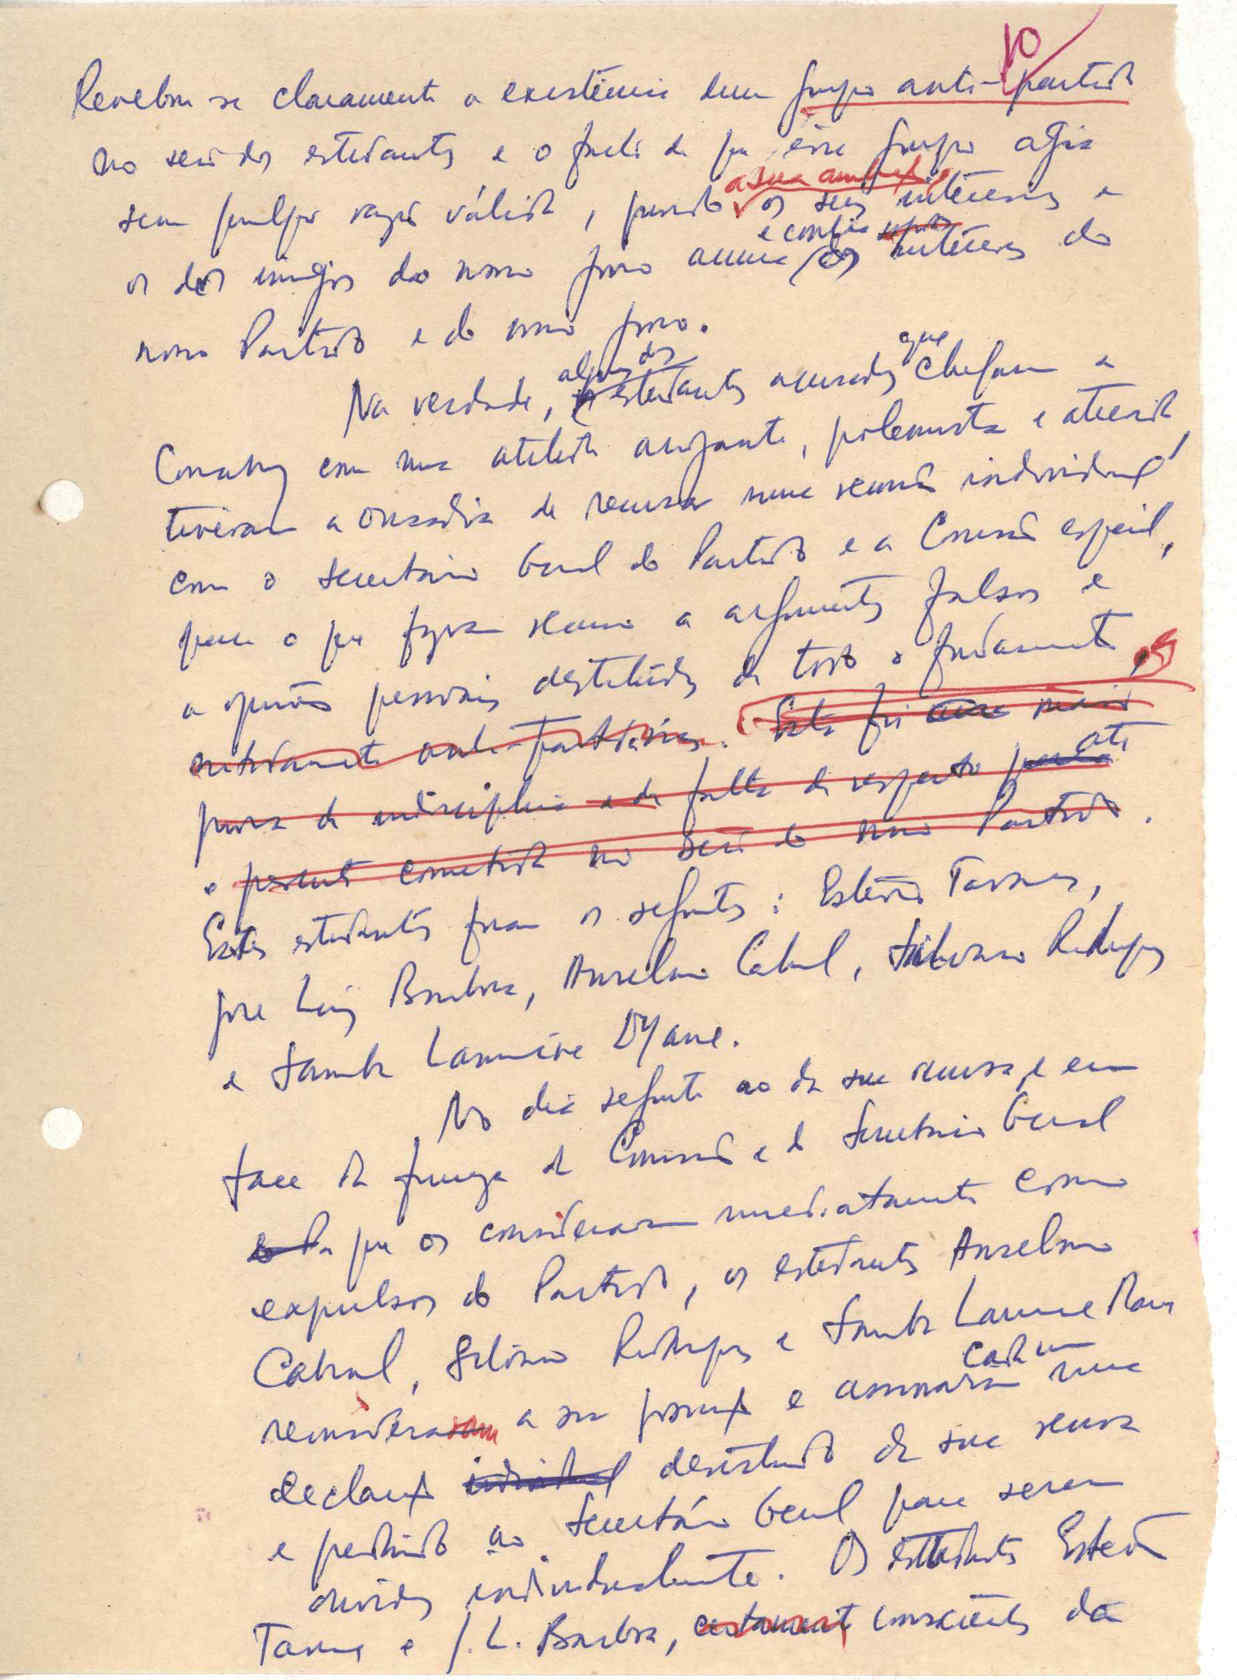 10
Revelou-se claramente a existência dum grupo anti-partido
no seio dos estudantes e o facto de que esse grupo agia
a sua ambição
sem qualquer razão válida, pondo os seus interesses e
e contra
os dos inimigos do nosso povo acima dos interesses do
nosso Partido e do nosso povo.
alguns dos que
Na verdade, estudantes acusados chegam a
Conakry com uma atitude arrogante, polemista e
tiveram a ousadia de recusar uma reunião individual
com o Secretário Geral do Partido e a Comissão especial,
para o que fizeram recurso a argumentos falsos e
a opiniões pessoais destituídas de todo o fundamento,
nitidamente anti-partidárias. Esta foi a mais
até
prova de indisciplina e de falta de respeito
o presente cometida no seio do nosso Partido.
Estes estudantes foram os seguintes: Estêvão Tavares,
José Luís Barbosa, Anselmo Cabral, Silvino Rodrigues
e Samba Lamine Djane.
No dia seguinte ao da sua recusa, e em
face da firmeza da Comissão e do Secretário Geral
que os consideraram imediatamente como
expulsos do Partido, os estudantes Anselmo
Cabral, Silvino Rodrigues e Samba Lamine Mané
cada um
reconsideraram a sua posição e assinaram uma
declaração individual desistindo da sua recusa
e pedindo ao Secretário Geral para serem
ouvidos individualmente. Os estudantes Estêvão
Tavares e J. L. Barbosa, certamente conscientes da